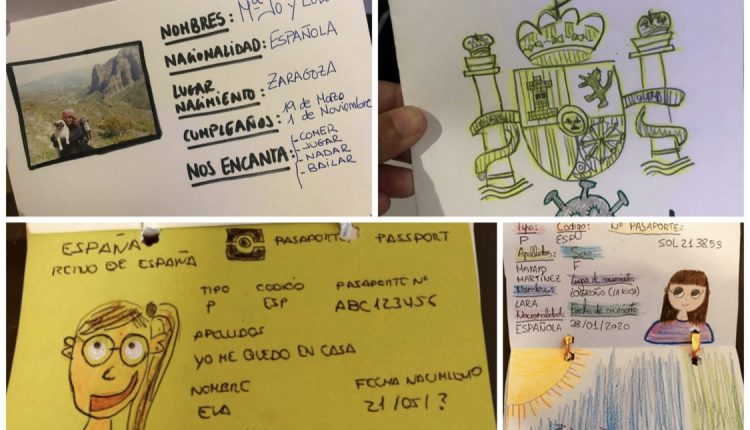 NOMBRES: Mª Jo y
NACIONALIDAD: ESPAÑOLA
LUGAR NACIMIENTO: ZARAGOZA
CUMPLEAÑOS: 19 de Marzo
1 de Noviembre
NOS ENCANTA:
- COMER
- JUGAR
- NADAR
- BAILAR
ESPAÑA
REINO DE ESPAÑA
PASAPORTE PASSPORT
TIPO CODIGO PASAPORTE Nº
P ESP ABC123456
APELLIDOS
YO ME QUEDO EN CASA
NOMBRE FECHA NACIMIENTO
ELA 21/05/?
Tipo: Código: Nº PASAPORTE:
P ESPÑ SOL213853
Apellidos: Sexo
F
MARTINEZ Lugar de nacimiento
Nombre: LOGROÑO (LA RIOJA)
LARA
Nacionalidad: Fecha de nacimiento
ESPAÑOLA 28/01/2020